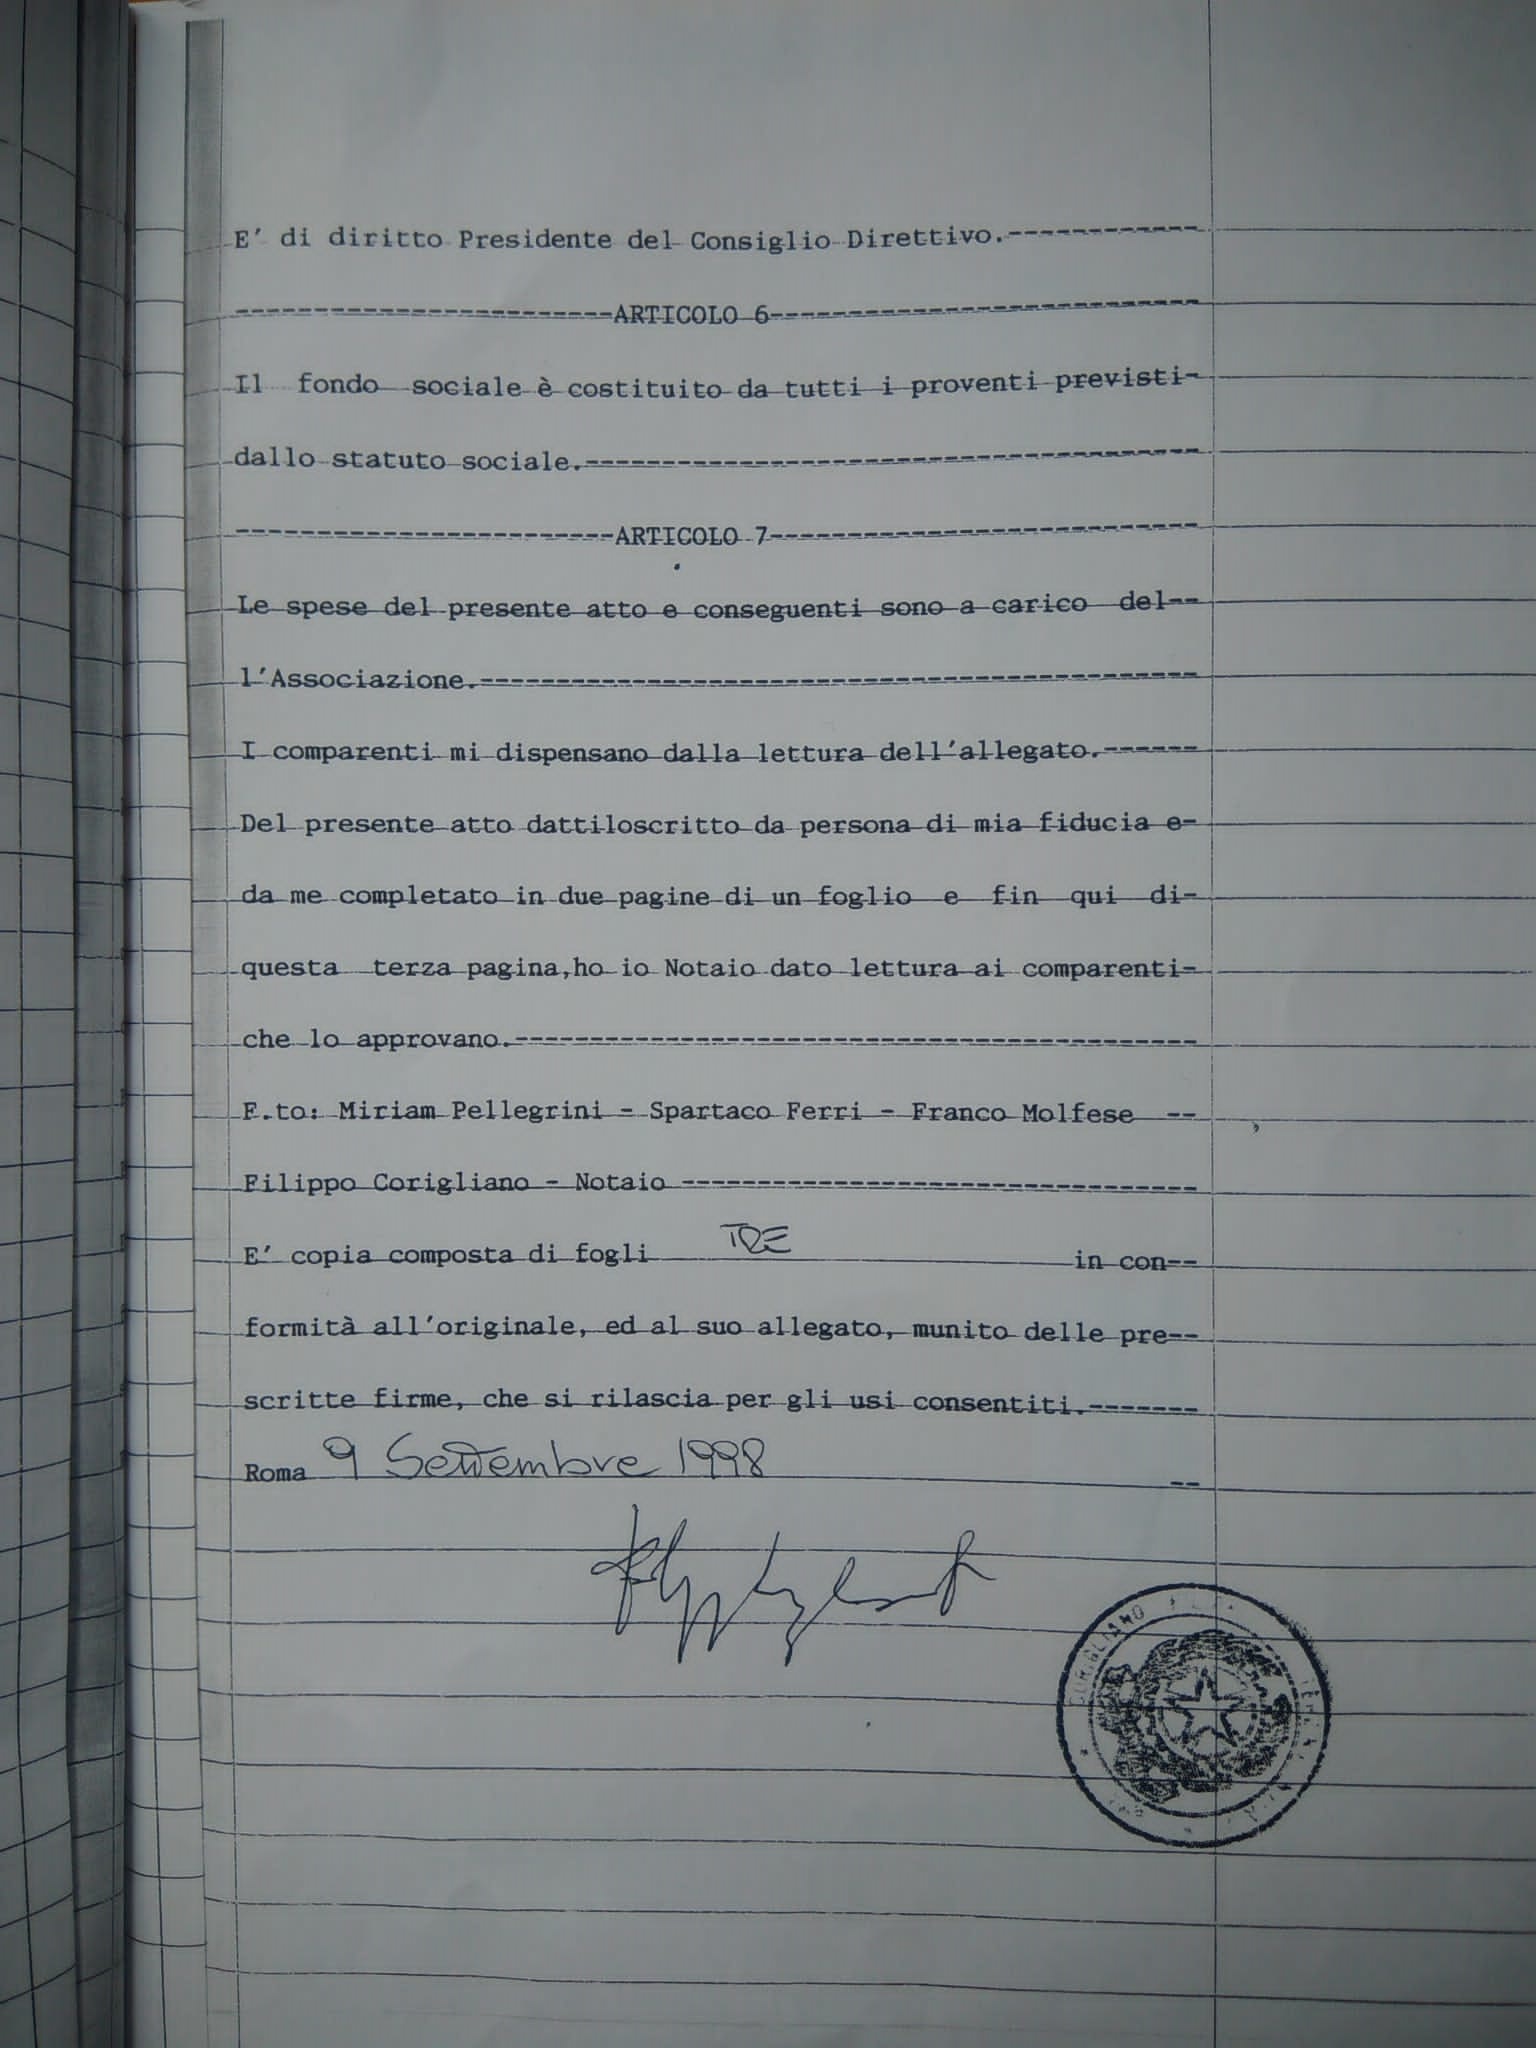 E' di diritto Presidente del Consiglio Direttivo.------------
------------------------ARTICOLO 6---------------------------
Il fondo sociale è costituito da tutti i proventi previsti-
dallo statuto sociale.---------------------------------------
------------------------ARTICOLO 7---------------------------
Le spese del presente atto e conseguenti sono a carico del--
l'Associazione.----------------------------------------------
I comparenti mi dispensano dalla lettura dell'allegato.------
Del presente atto dattiloscritto da persona di mia fiducia e-
da me completato in due pagine di un foglio e fin qui di-
questa terza pagina,ho io Notaio dato lettura ai comparenti-
che lo approvano.--------------------------------------------
F.to: Miriam Pellegrini - Spartaco Ferri - Franco Molfese --
Filippo Corigliano - Notaio ---------------------------------
E' copia composta di fogli TRE in con--
formità all'originale, ed al suo allegato, munito delle pre--
scritte firme, che si rilascia per gli usi consentiti.-------
Roma 9 Settembre 1998 --
CORIGLIANO